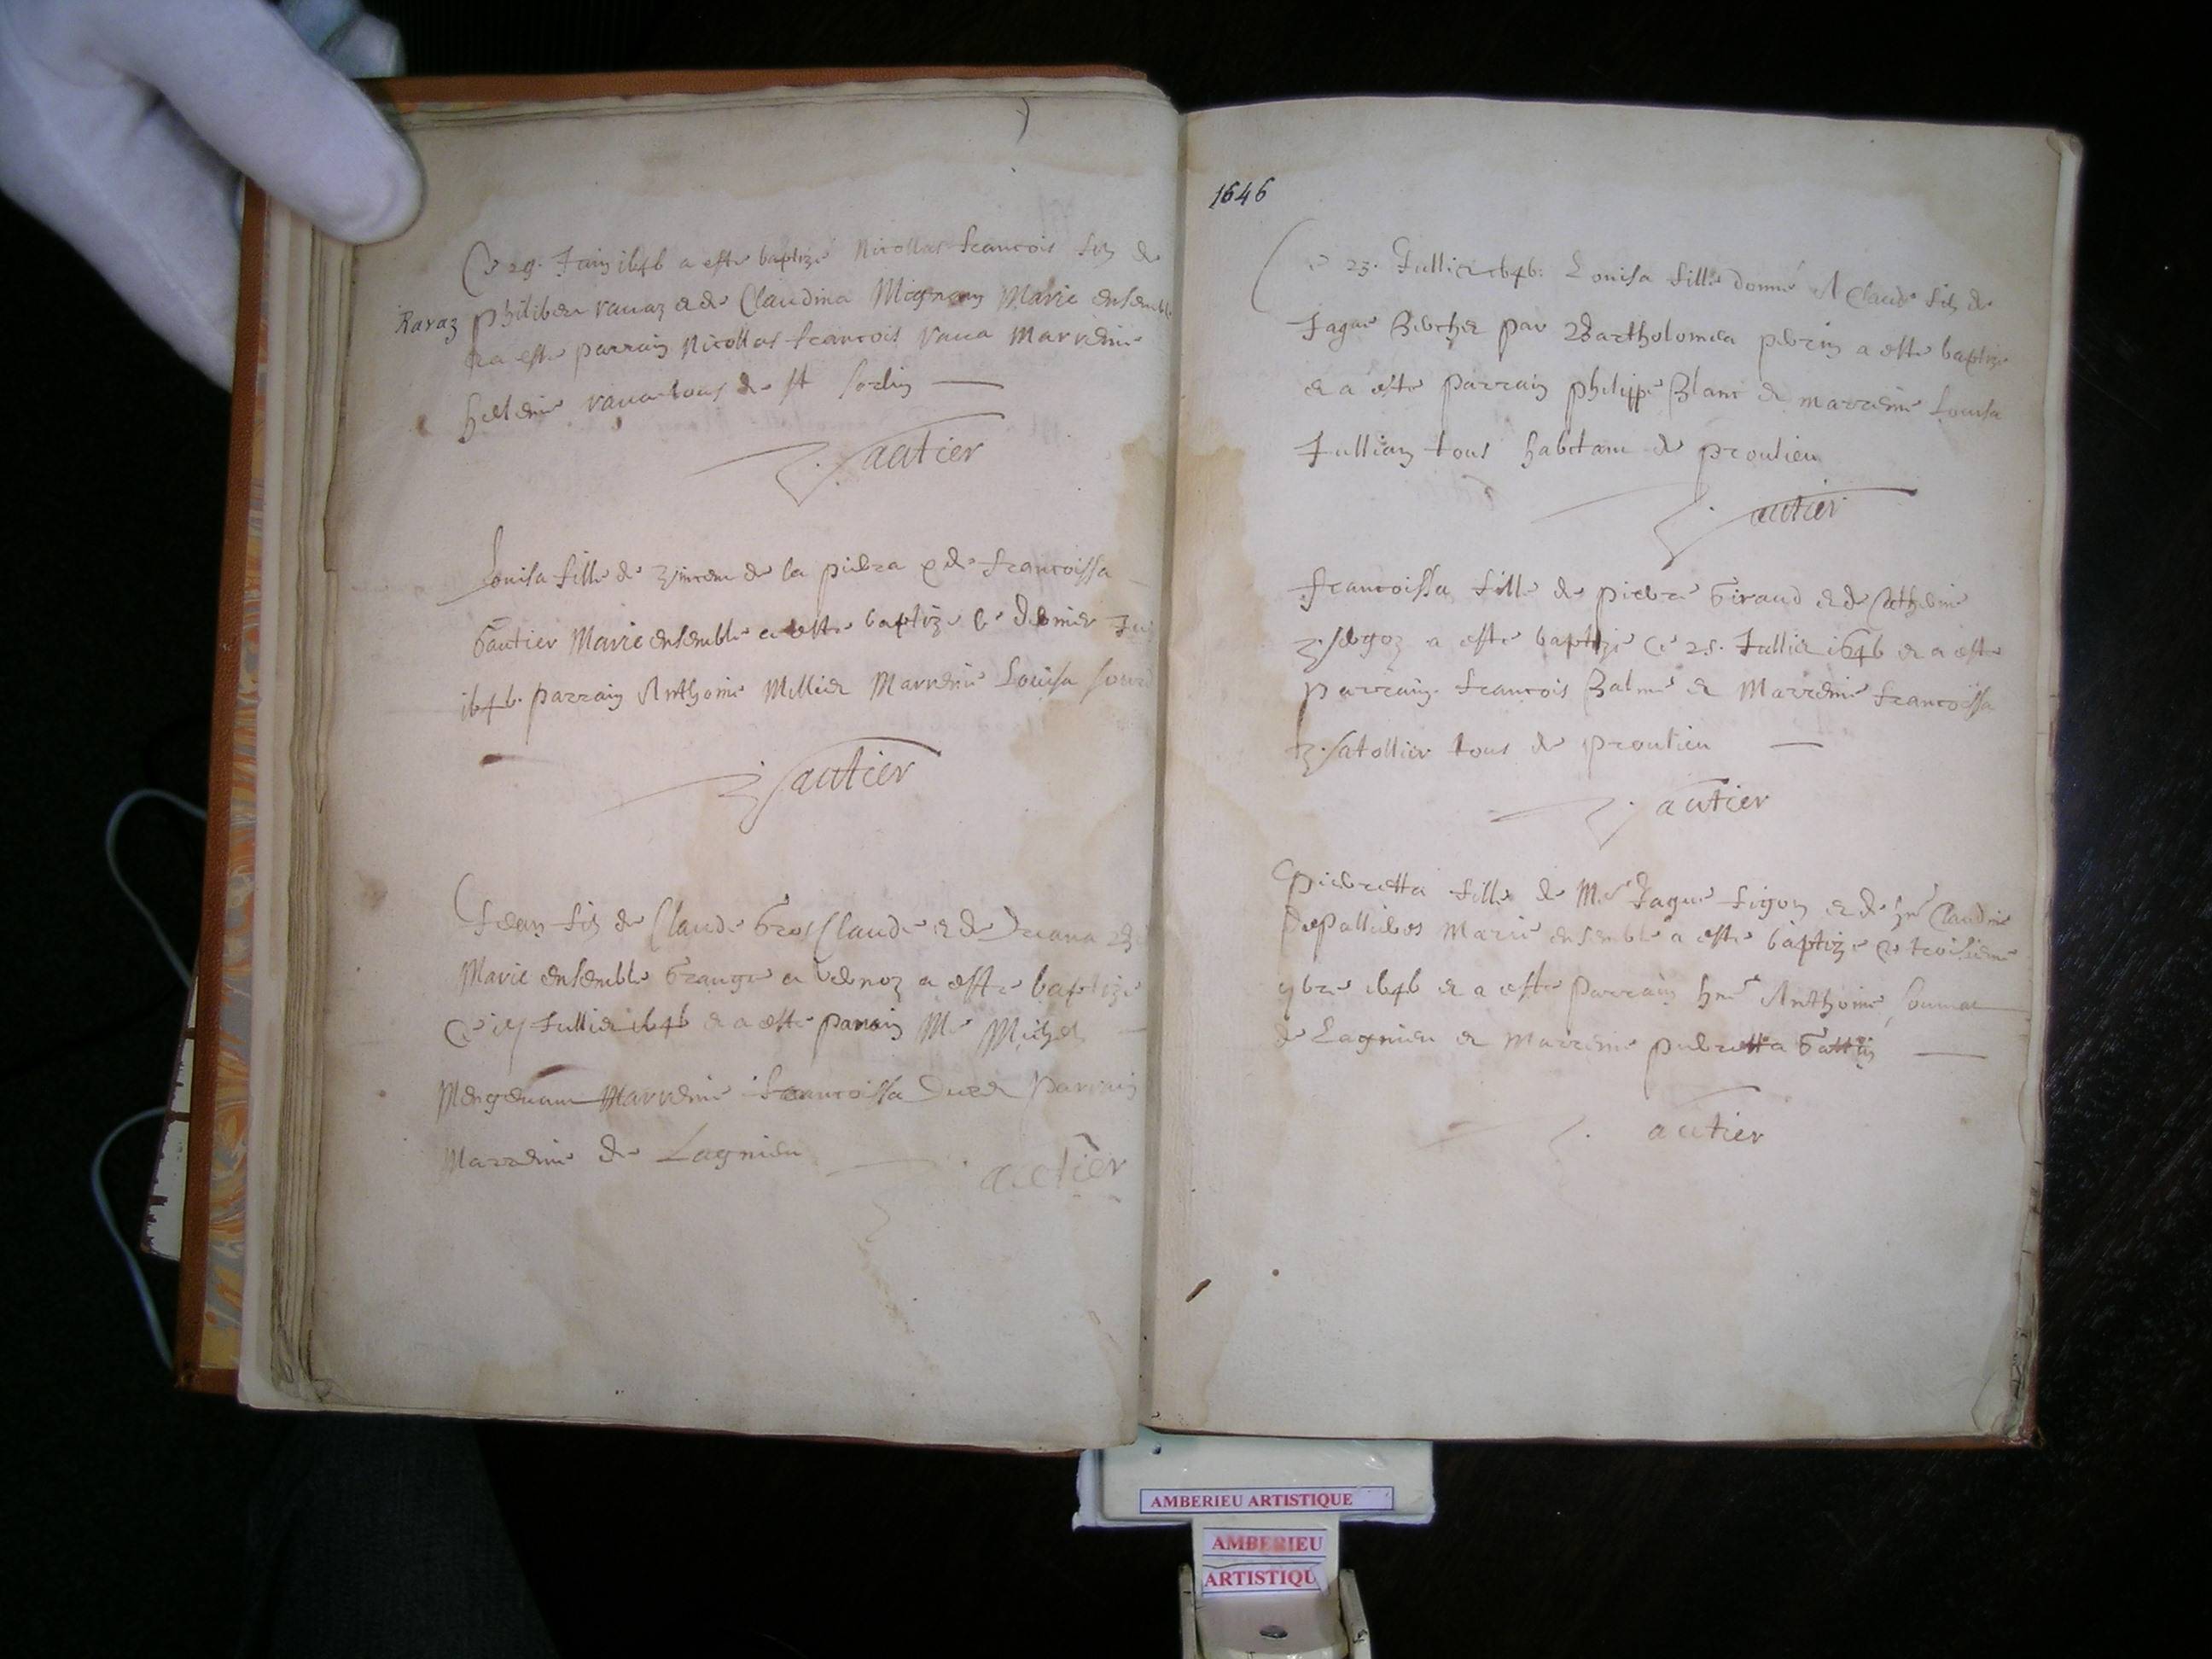 Ce 29. Juin 1646 a este baptizé Nicollas francois filz de
Ravaz
philiber ravaz et de Claudina Mignany Marie ensemble
et a este parrain Nicollas francois rava Marrenie
hellenie rava tous de st sorlin
Gautier
Louisa fille de Vincent de la piera & de francoissa
Gautier Marie ensemble a este baptizé le dernier Jui
1646. parrain Anthoine Millier Marrenie Louisa
Gautier
Jean filz de Claude Gros Claude et de
Marie ensemble a este baptizé
Ce Jullier 1646 et a este parrain Me Michel
Marrenie francoissa parrain
Marrenie de Lagnieu
Gautier
1646
Ce 23. Jullier 1646. Louisa fille donné A Claude filz de
Jaque par Bartholomea perrin a este baptizé
et a este parrain philippe Blanc et marrenie Louisa
Jullian tous habitans de proulieu
Gautier
francoissa fille de pierre Giraud et de Catherine
a este baptizé Ce 25. Jullier 1646 et a este
parrain francois Balme et Marrenie francoissa
tous de proulieu
Gautier
pierretta fille de Me Jaque figon et de hne Claudine
Marie ensemble a este baptizé Ce troisieme
1646 et a este parrain Anthoine
de Lagnieu et Marrenie pierretta
Gautier
AMBERIEU ARTISTIQUE
AMBERIEU
ARTISTIQU